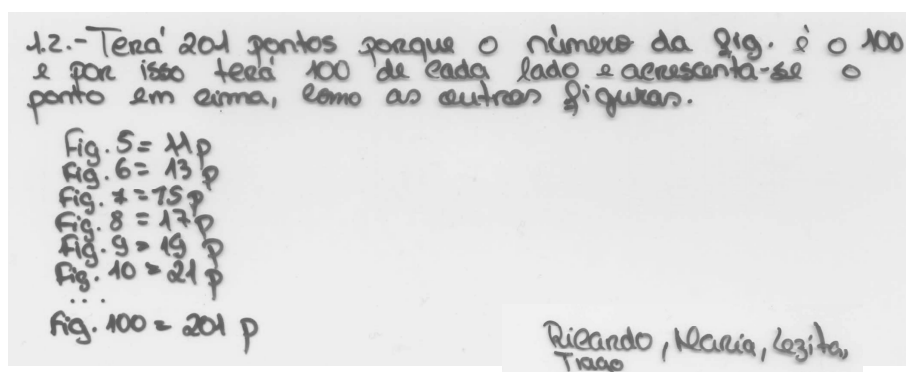 1.2.- Terá 201 pontos porque o número da fig. é o 100
e por isso terá 100 de cada lado e acrescenta-se o
ponto em cima, como as outras figuras.
Fig. 5 = 11 p
Fig. 6 = 13 p
Fig. 7 = 15 p
Fig. 8 = 17 p
Fig. 9 = 19 p
Fig. 10 = 21 p
...
Fig. 100 = 201 p
Ricardo, Maria, Lezita,
Tiago